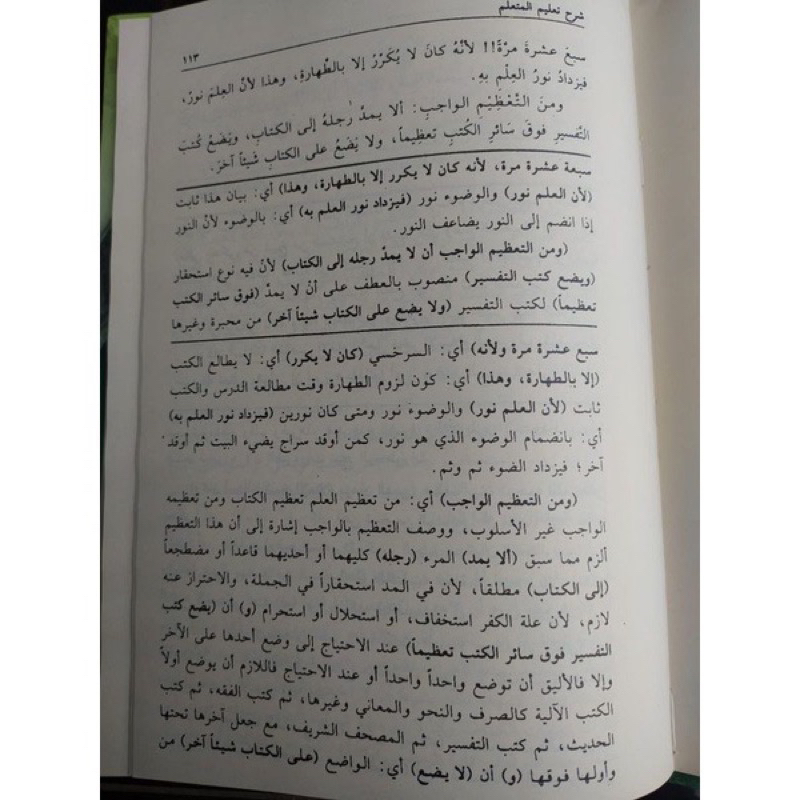 شرح تعليم المتعلم
١١٣
سبعَ عشرةَ مرّةً!! لأنّهُ كانَ لا يُكَرّرُ إلا بالطّهارةِ، وهذا لأنّ العِلمَ نورٌ،
فيزدادُ نورُ العِلْمِ بهِ.
ومنَ التّعْظِيْمِ الواجبِ: ألا يمدّ رِجلَهُ إلى الكتابِ، ويَضَعُ كُتبَ
التّفسيرِ فوقَ سَائرِ الكُتبِ تعظِيماً، ولا يَضَعُ على الكتابِ شَيئاً آخرَ.
سبعة عشرة مرة، لأنه كان لا يكرر إلا بالطهارة، وهذا) أي: بيان هذا ثابت
(لأن العلم نور) والوضوء نور (فيزداد نور العلم به) أي: بالوضوء لأنّ النور
إذا انضم إلى النور يضاعف النور.
(ومن التعظيم الواجب أن لا يمدّ رجله إلى الكتاب) لأنّ فيه نوع استحقار
(ويضع كتب التفسير) منصوب بالعطف على أنْ لا يمدّ (فوق سائر الكتب
تعظيماً) لكتب التفسير (ولا يضع على الكتاب شيئاً آخر) من محبرة وغيرها
سبع عشرة مرة ولأنه) أي: السرخسي (كان لا يكرر) أي: لا يطالع الكتب
(إلا بالطهارة، وهذا) أي: كون لزوم الطهارة وقت مطالعة الدرس والكتب
ثابت (لأن العلم نور) والوضوء نور ومتى كان نورين (فيزداد نور العلم به)
أي: بانضمام الوضوء الذي هو نور، كمن أوقد سراج يضيء البيت ثم أوقد
آخر؛ فيزداد الضوء ثم وثم.
(ومن التعظيم الواجب) أي: من تعظيم العلم تعظيم الكتاب ومن تعظيمه
الواجب غير الأسلوب، ووصف التعظيم بالواجب إشارة إلى أن هذا التعظيم
ألزم مما سبق (ألا يمد) المرء (رجله) كليهما أو أحديهما قاعداً أو مضطجعاً
(إلى الكتاب) مطلقاً، لأن في المد استحقاراً في الجملة، والاحتراز عنه
لازم، لأن علة الكفر استخفاف، أو استحلال أو استحرام (و) أن (يضع كتب
التفسير فوق سائر الكتب تعظيماً) عند الاحتياج إلى وضع أحدها على الآخر
وإلا فالأليق أن توضع واحداً واحداً أو عند الاحتياج فاللازم أن يوضع أولاً
الكتب الآلية كالصرف والنحو والمعاني وغيرها، ثم كتب الفقه، ثم كتب
الحديث، ثم كتب التفسير، ثم المصحف الشريف، مع جعل آخرها تحتها
وأولها فوقها (و) أن (لا يضع) أي: الواضع (على الكتاب شيئاً آخر) من